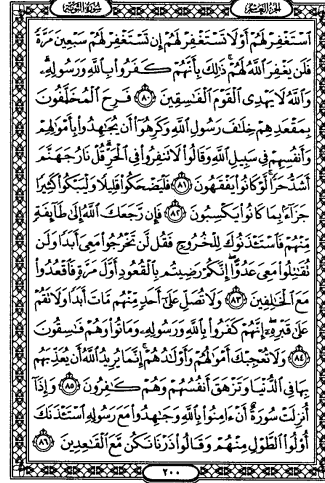 الجزء العاشر سورة التوبة
ٱسۡتَغۡفِرۡ لَهُمۡ أَوۡ لَا تَسۡتَغۡفِرۡ لَهُمۡ إِن تَسۡتَغۡفِرۡ لَهُمۡ سَبۡعِينَ مَرَّةٗ
فَلَن يَغۡفِرَ ٱللَّهُ لَهُمۡۚ ذَٰلِكَ بِأَنَّهُمۡ كَفَرُواْ بِٱللَّهِ وَرَسُولِهِۦۗ
وَٱللَّهُ لَا يَهۡدِي ٱلۡقَوۡمَ ٱلۡفَٰسِقِينَ ٨٠ فَرِحَ ٱلۡمُخَلَّفُونَ
بِمَقۡعَدِهِمۡ خِلَٰفَ رَسُولِ ٱللَّهِ وَكَرِهُوٓاْ أَن يُجَٰهِدُواْ بِأَمۡوَٰلِهِمۡ
وَأَنفُسِهِمۡ فِي سَبِيلِ ٱللَّهِ وَقَالُواْ لَا تَنفِرُواْ فِي ٱلۡحَرِّۗ قُلۡ نَارُ جَهَنَّمَ
أَشَدُّ حَرّٗاۚ لَّوۡ كَانُواْ يَفۡقَهُونَ ٨١ فَلۡيَضۡحَكُواْ قَلِيلٗا وَلۡيَبۡكُواْ كَثِيرٗا
جَزَآءَۢ بِمَا كَانُواْ يَكۡسِبُونَ ٨٢ فَإِن رَّجَعَكَ ٱللَّهُ إِلَىٰ طَآئِفَةٖ
مِّنۡهُمۡ فَٱسۡتَـٔۡذَنُوكَ لِلۡخُرُوجِ فَقُل لَّن تَخۡرُجُواْ مَعِيَ أَبَدٗا وَلَن
تُقَٰتِلُواْ مَعِيَ عَدُوًّاۖ إِنَّكُمۡ رَضِيتُم بِٱلۡقُعُودِ أَوَّلَ مَرَّةٖ فَٱقۡعُدُواْ
مَعَ ٱلۡخَٰلِفِينَ ٨٣ وَلَا تُصَلِّ عَلَىٰٓ أَحَدٖ مِّنۡهُم مَّاتَ أَبَدٗا وَلَا تَقُمۡ
عَلَىٰ قَبۡرِهِۦٓۖ إِنَّهُمۡ كَفَرُواْ بِٱللَّهِ وَرَسُولِهِۦ وَمَاتُواْ وَهُمۡ فَٰسِقُونَ
٨٤ وَلَا تُعۡجِبۡكَ أَمۡوَٰلُهُمۡ وَأَوۡلَٰدُهُمۡۚ إِنَّمَا يُرِيدُ ٱللَّهُ أَن يُعَذِّبَهُم
بِهَا فِي ٱلدُّنۡيَا وَتَزۡهَقَ أَنفُسُهُمۡ وَهُمۡ كَٰفِرُونَ ٨٥ وَإِذَآ
أُنزِلَتۡ سُورَةٌ أَنۡ ءَامِنُواْ بِٱللَّهِ وَجَٰهِدُواْ مَعَ رَسُولِهِ ٱسۡتَـٔۡذَنَكَ
أُوْلُواْ ٱلطَّوۡلِ مِنۡهُمۡ وَقَالُواْ ذَرۡنَا نَكُن مَّعَ ٱلۡقَٰعِدِينَ ٨٦
٢٠٠